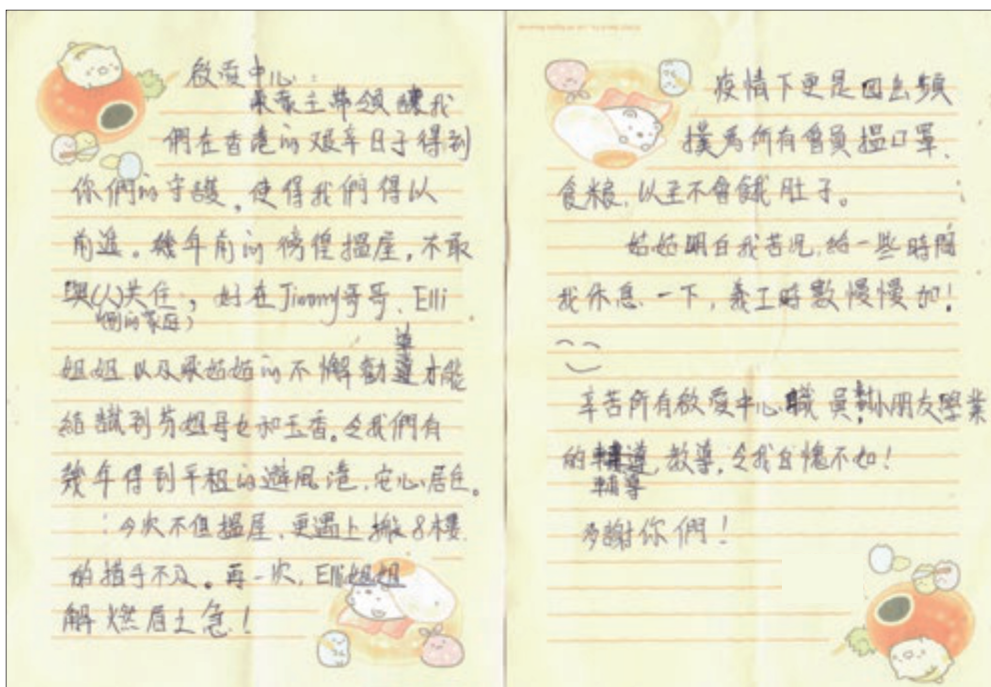 啟愛中心：
主帶領讓我
們在香港的艱辛日子得到
你們的守護，使得我們得以
前進。幾年前的徬徨搵屋，不敢
與(人)共住，好在Jimmy哥哥、Elli
(個的家庭)
姐姐以及承姑姑的不懈勸導才能
結識到芬姐母女和玉香。令我們有
幾年得到平租的避風港，安心居住。
今次不但搵屋，更遇上搬8樓
的措手不及。再一次，Elli姐姐
解燃眉之急！
疫情下更是四出頻
撲為所有會員搵口罩、
食糧，以至不會餓肚子。
姑姑明白我苦況，給一些時間
我休息一下，義工時數慢慢加！
辛苦所有啟愛中心職員對小朋友學業
的輔導，教導，令我自愧不如！
輔導
多謝你們！